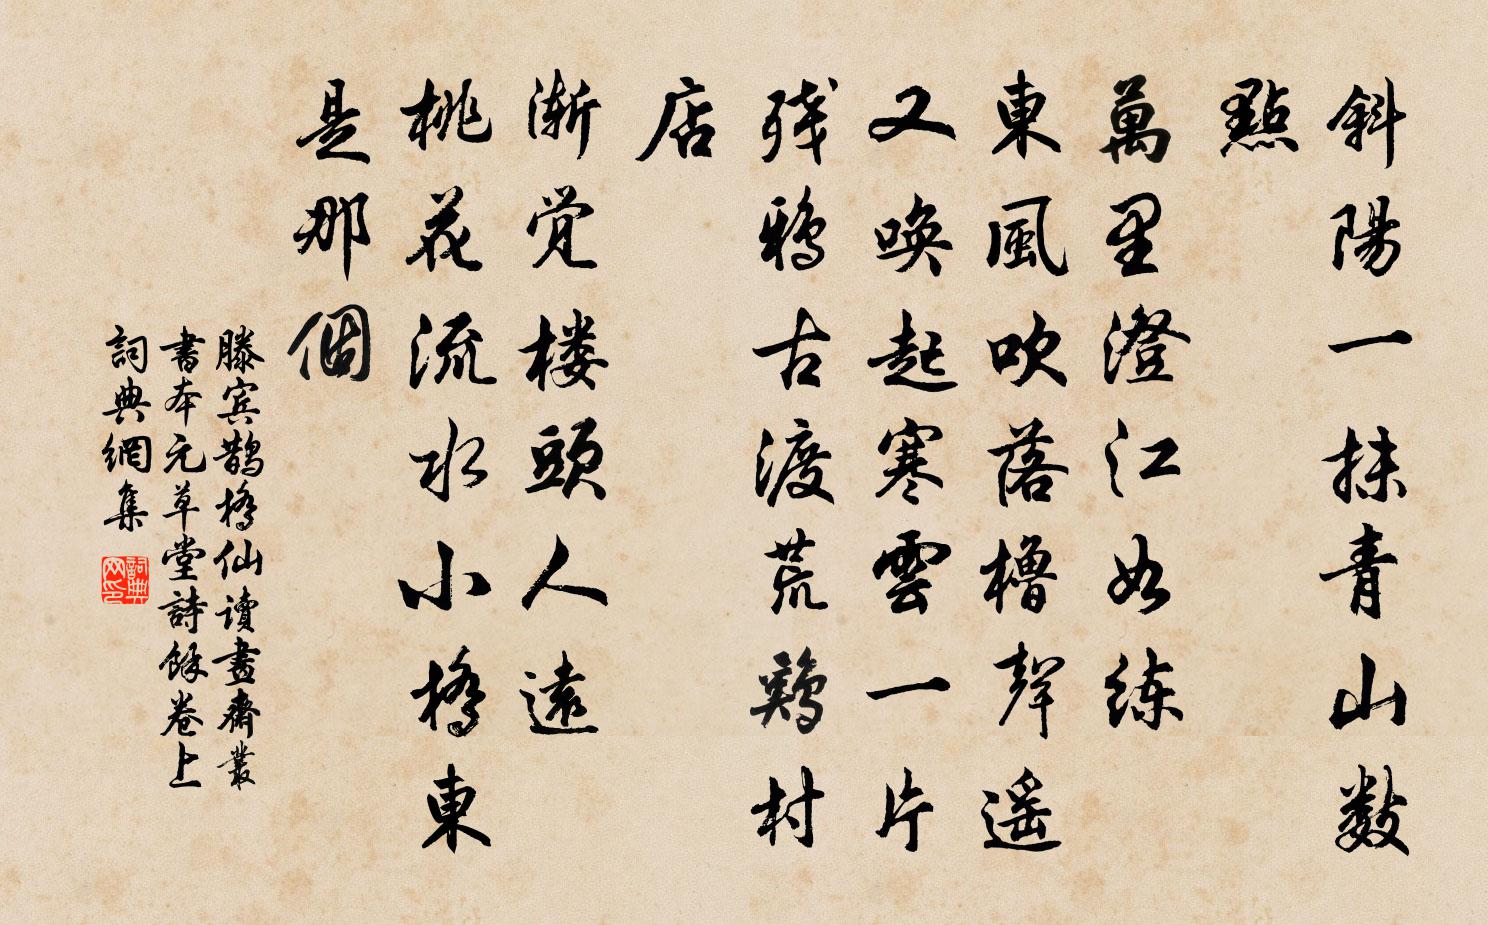 斜陽一抹青山數
點
萬里澄江如練
東風吹落櫓聲遥
又唤起寒雲一片
残鴉古渡荒鷄村
店
漸覚楼頭人遠
桃花流水小橋東
是那個
滕宾鹊橋仙读畫齋叢
書本元草堂詩餘卷上
詞典網集
詞典
网印